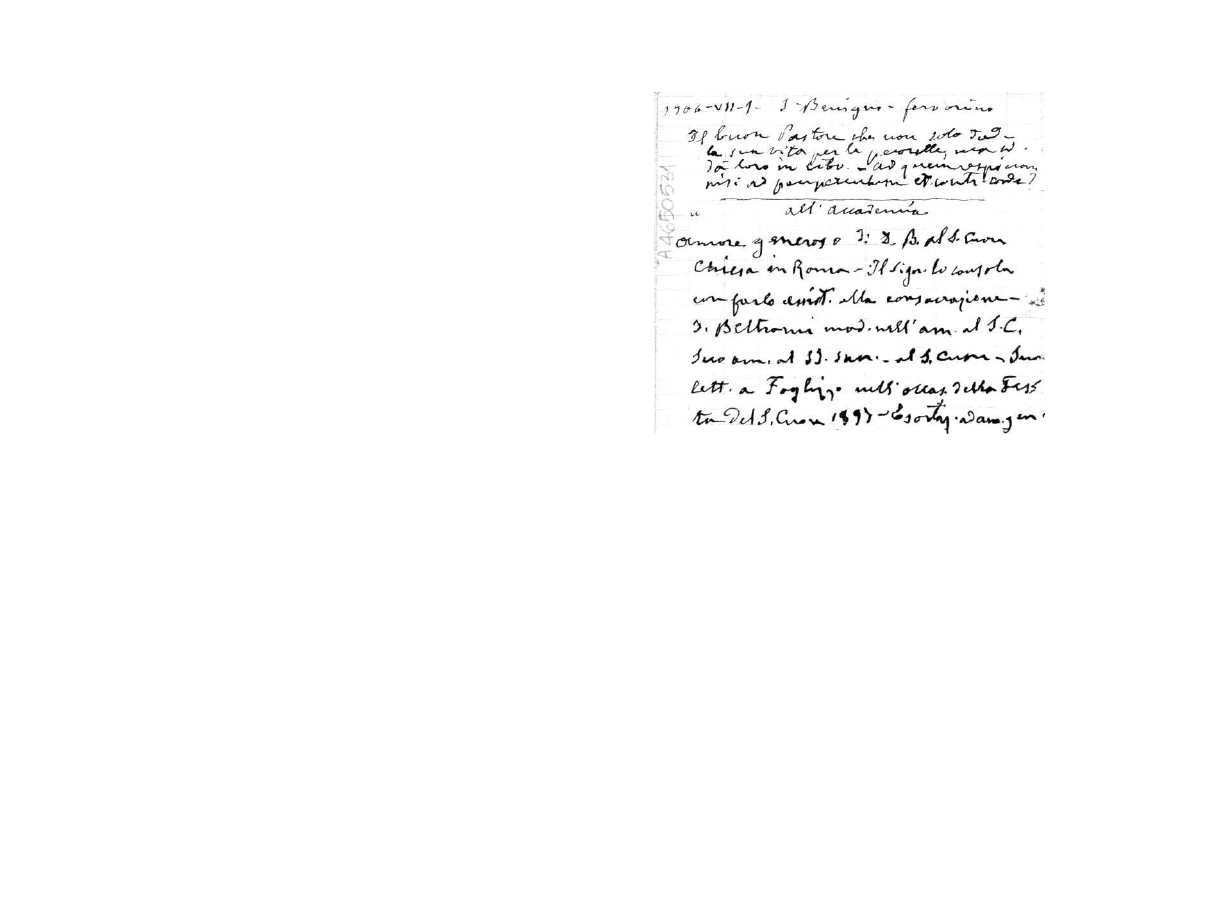 1906-VII-1- S. Benigno - fervorino
Il buon Pastore che non solo diede
la sua vita per le pecorelle, ma si
dà loro in cibo. - ad quem respiciam
nisi ad pauperculum et contr. corde?
" all'accademia
amore generoso di D. B. al S. Cuore
Chiesa in Roma - Il Sign. lo consola
con farlo assist. alla consacrazione -
D. Beltrami mod. nell'am. al S. C.
Suo am. al SS. Sacr. - al S. Cuore - Sua
lett. a Foglizzo nell'occas. della Fes
ta del S. Cuore 1897 - Esortaz. ad am. gen.
A4650531